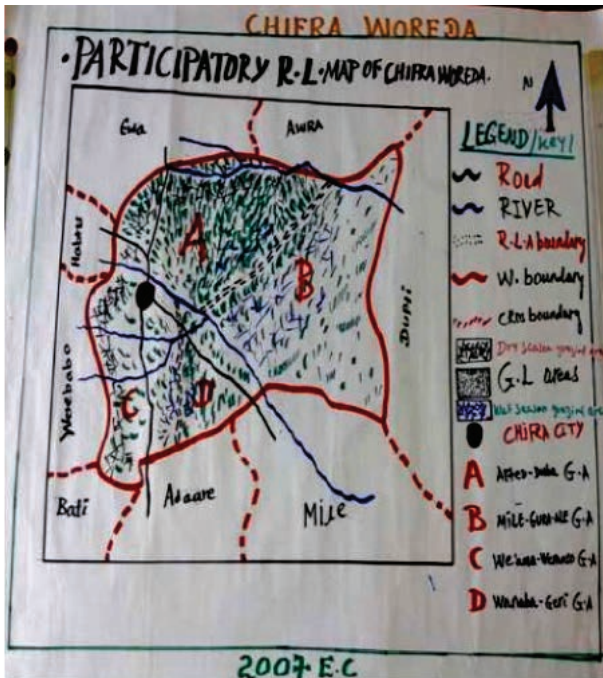 CHIFRA WOREDA
PARTICIPATORY R.L. MAP OF CHIFRA WOREDA.
N
Ewa
AWRA
Habru
Worebabo
Bati
Adaare
Mile
Dupti
A
B
C
D
LEGEND/key/
Road
RIVER
R.L.A boundary
W. boundary
boundary
Dry season grazing area
G.L areas
Wet season grazing area
CHIRA CITY
A G.A
B MILE-GURALE G.A
C G.A
D Wanaba-Geri G.A
2007 E.C